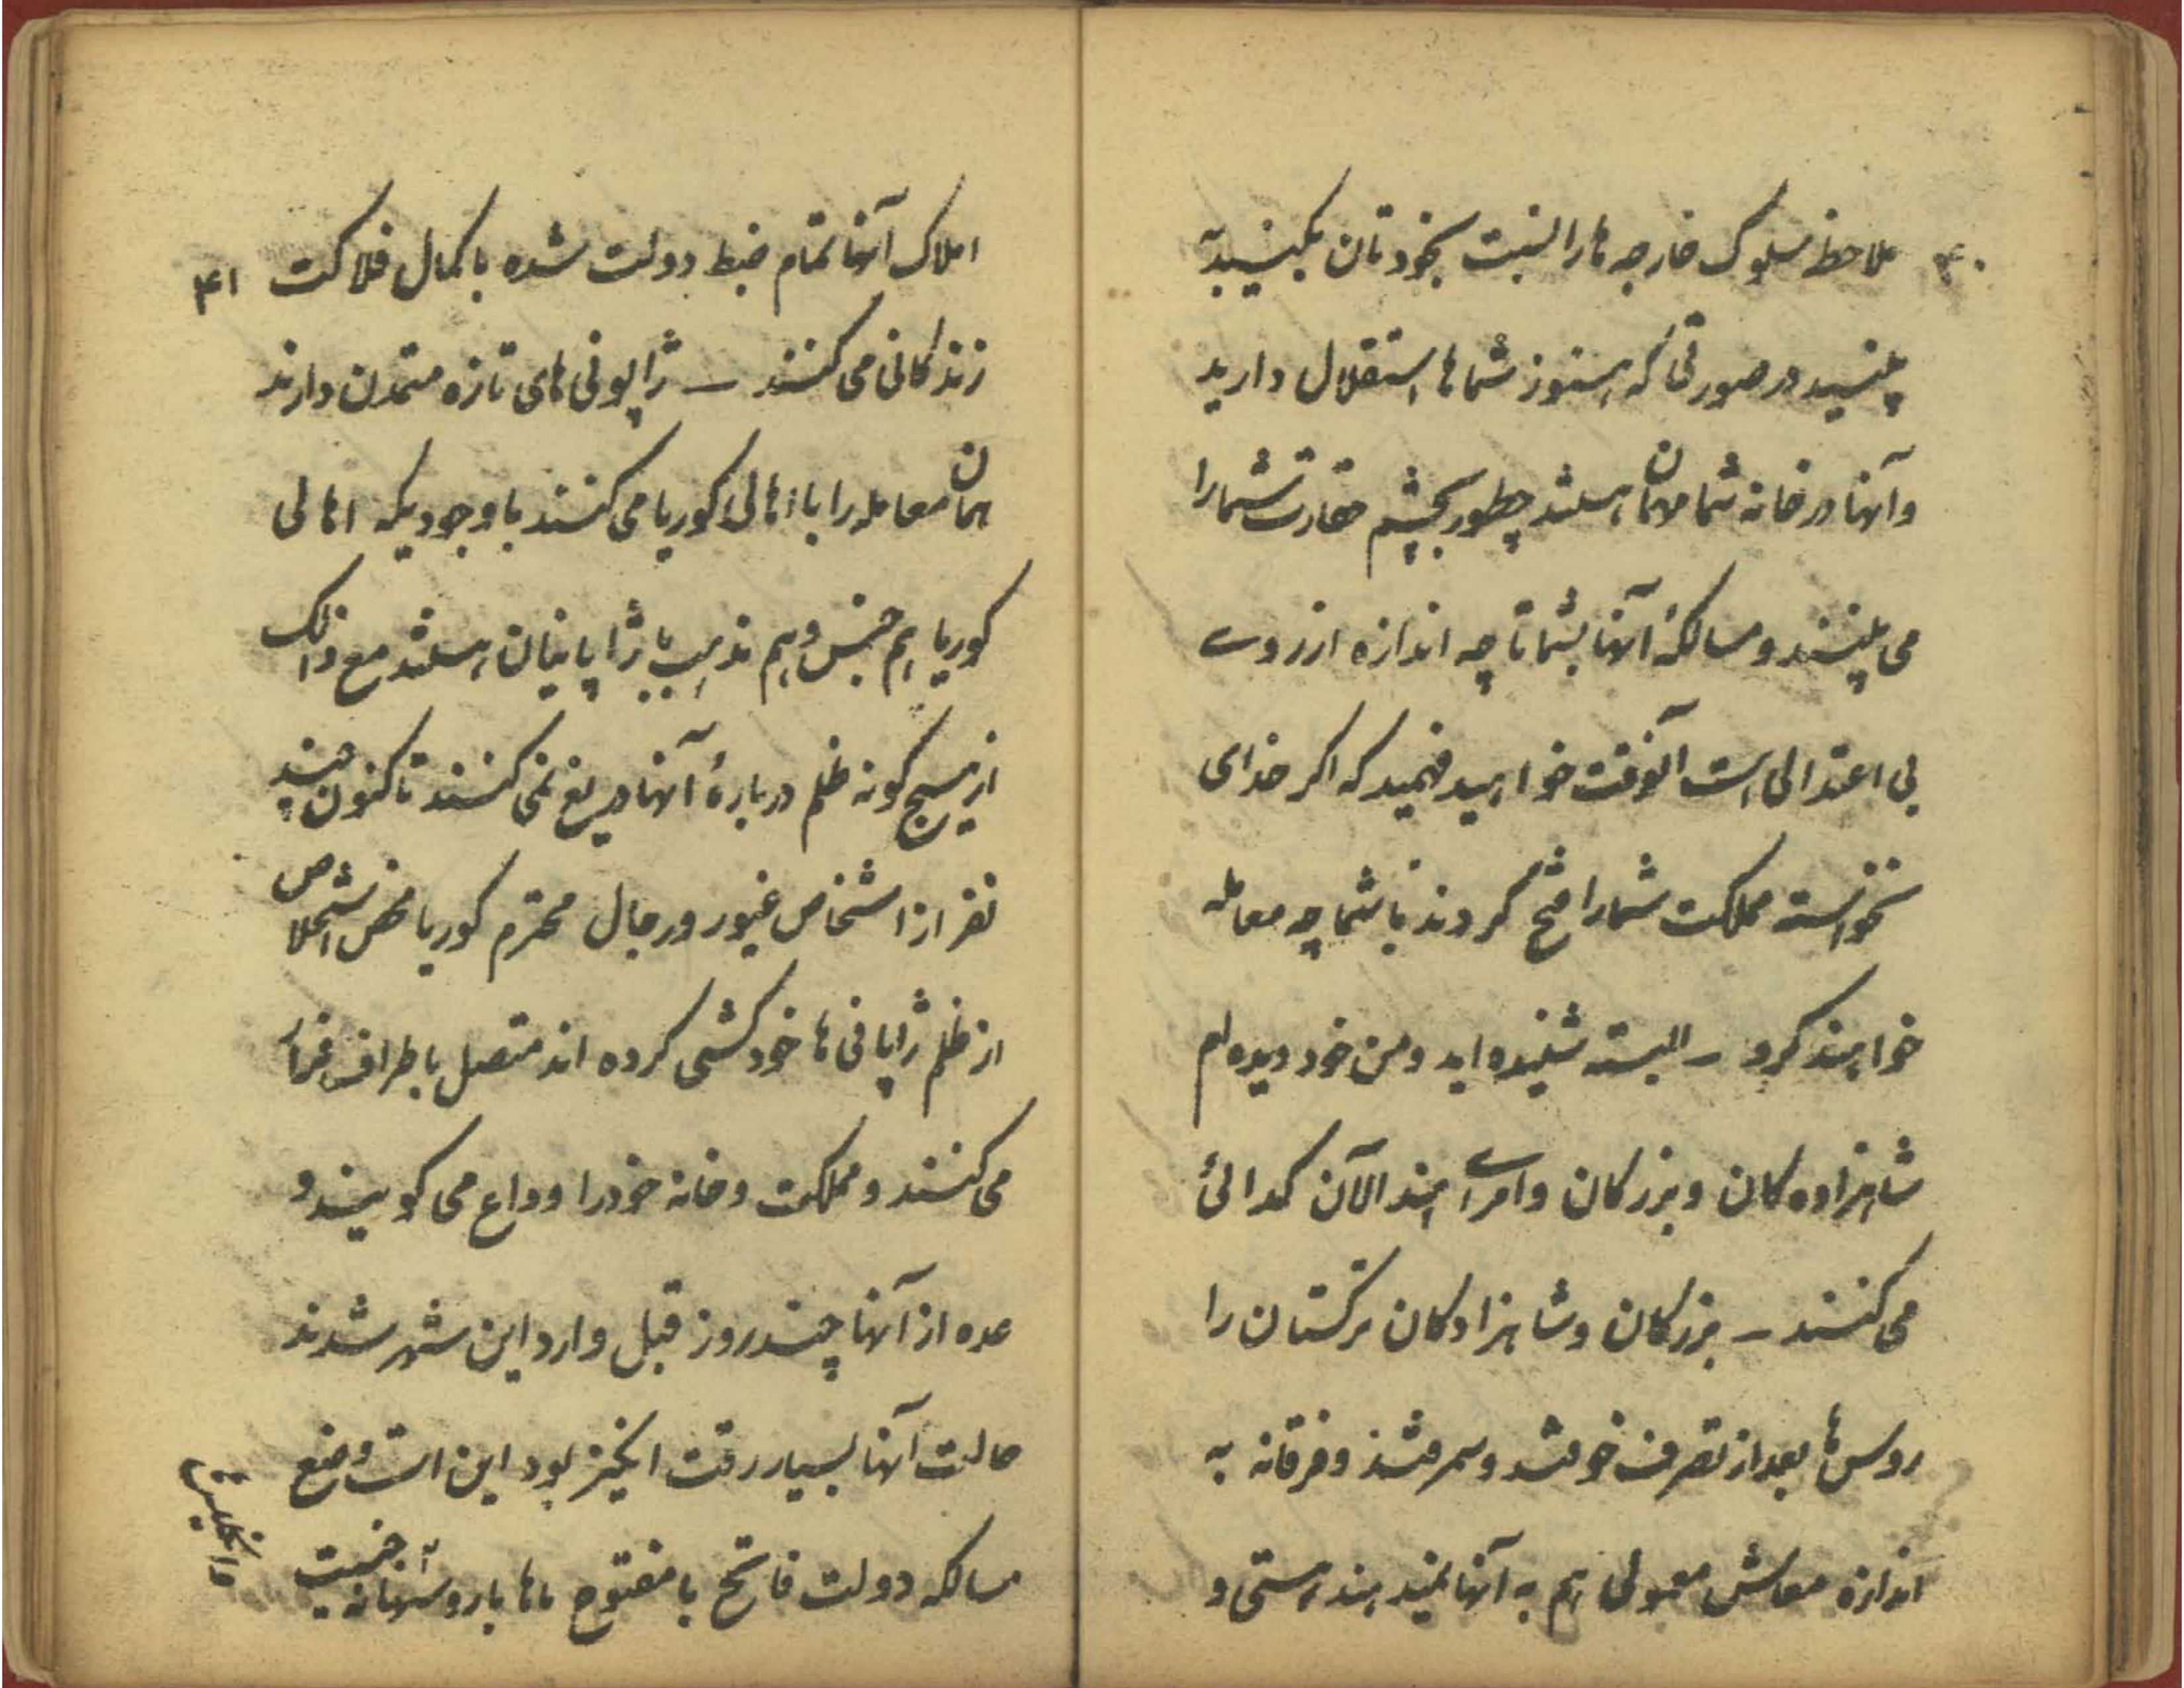 ۴۰
ملاحظه سلوک خارجه ها را نسبت بخودتان بکنید به
بینید در صورتی که هنوز شماها استقلال دارید
و آنها در خانه شما مهمان هستند چطور بچشم حقارت شما را
می بینند و سالکهٔ آنها بشما تا چه اندازه از روے
بی اعتدالی است آنوقت خواهید فهمید که اگر خدای
نخواسته مملکت شما را فتح کردند با شما چه معامله
خواهند کرد – البته شنیده اید و من خود دیده ام
شاهزاده کان و بزرکان و امراے هند الآن کدائی
می کنند – بزرکان و شاهزادکان ترکستان را
روس ها بعد از تصرف خوقند و سمرقند و فرقانه به
اندازه معاش معمولی هم به آنها نمیدهند هستی و
۴۱
املاک آنها تمام ضبط دولت شده با کمال فلاکت
زندکانی می کنند – ژاپونی های تازه متمدن دارند
همان معامله را با اهالی کوریا می کنند با وجودیکه اهالی
کوریا هم جنس و هم مذهب با ژاپانیان هستند مع ذالک
از هیچ کونه ظلم دربارهٔ آنها دریغ نمی کنند تا کنون چند
نفر از اشخاص غیور و رجال محترم کوریا محض استخلاص
از ظلم ژاپانی ها خودکشی کرده اند متصل باطراف فرار
می کنند و مملکت و خانه خود را وداع می کویند و
عده از آنها چند روز قبل وارد این شهر شدند
حالت آنها بسیار رقت انکیز بود این است وضع
سالکه دولت فاتح با مفتوح ماها با روسها نه جنسیت